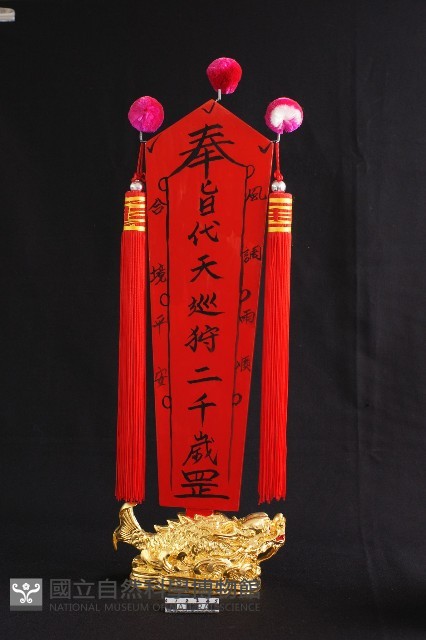 奉旨代天巡狩二千歲罡
風調雨順
合境平安
國立自然科學博物館
NATIONAL MUSEUM OF NATURAL SCIENCE